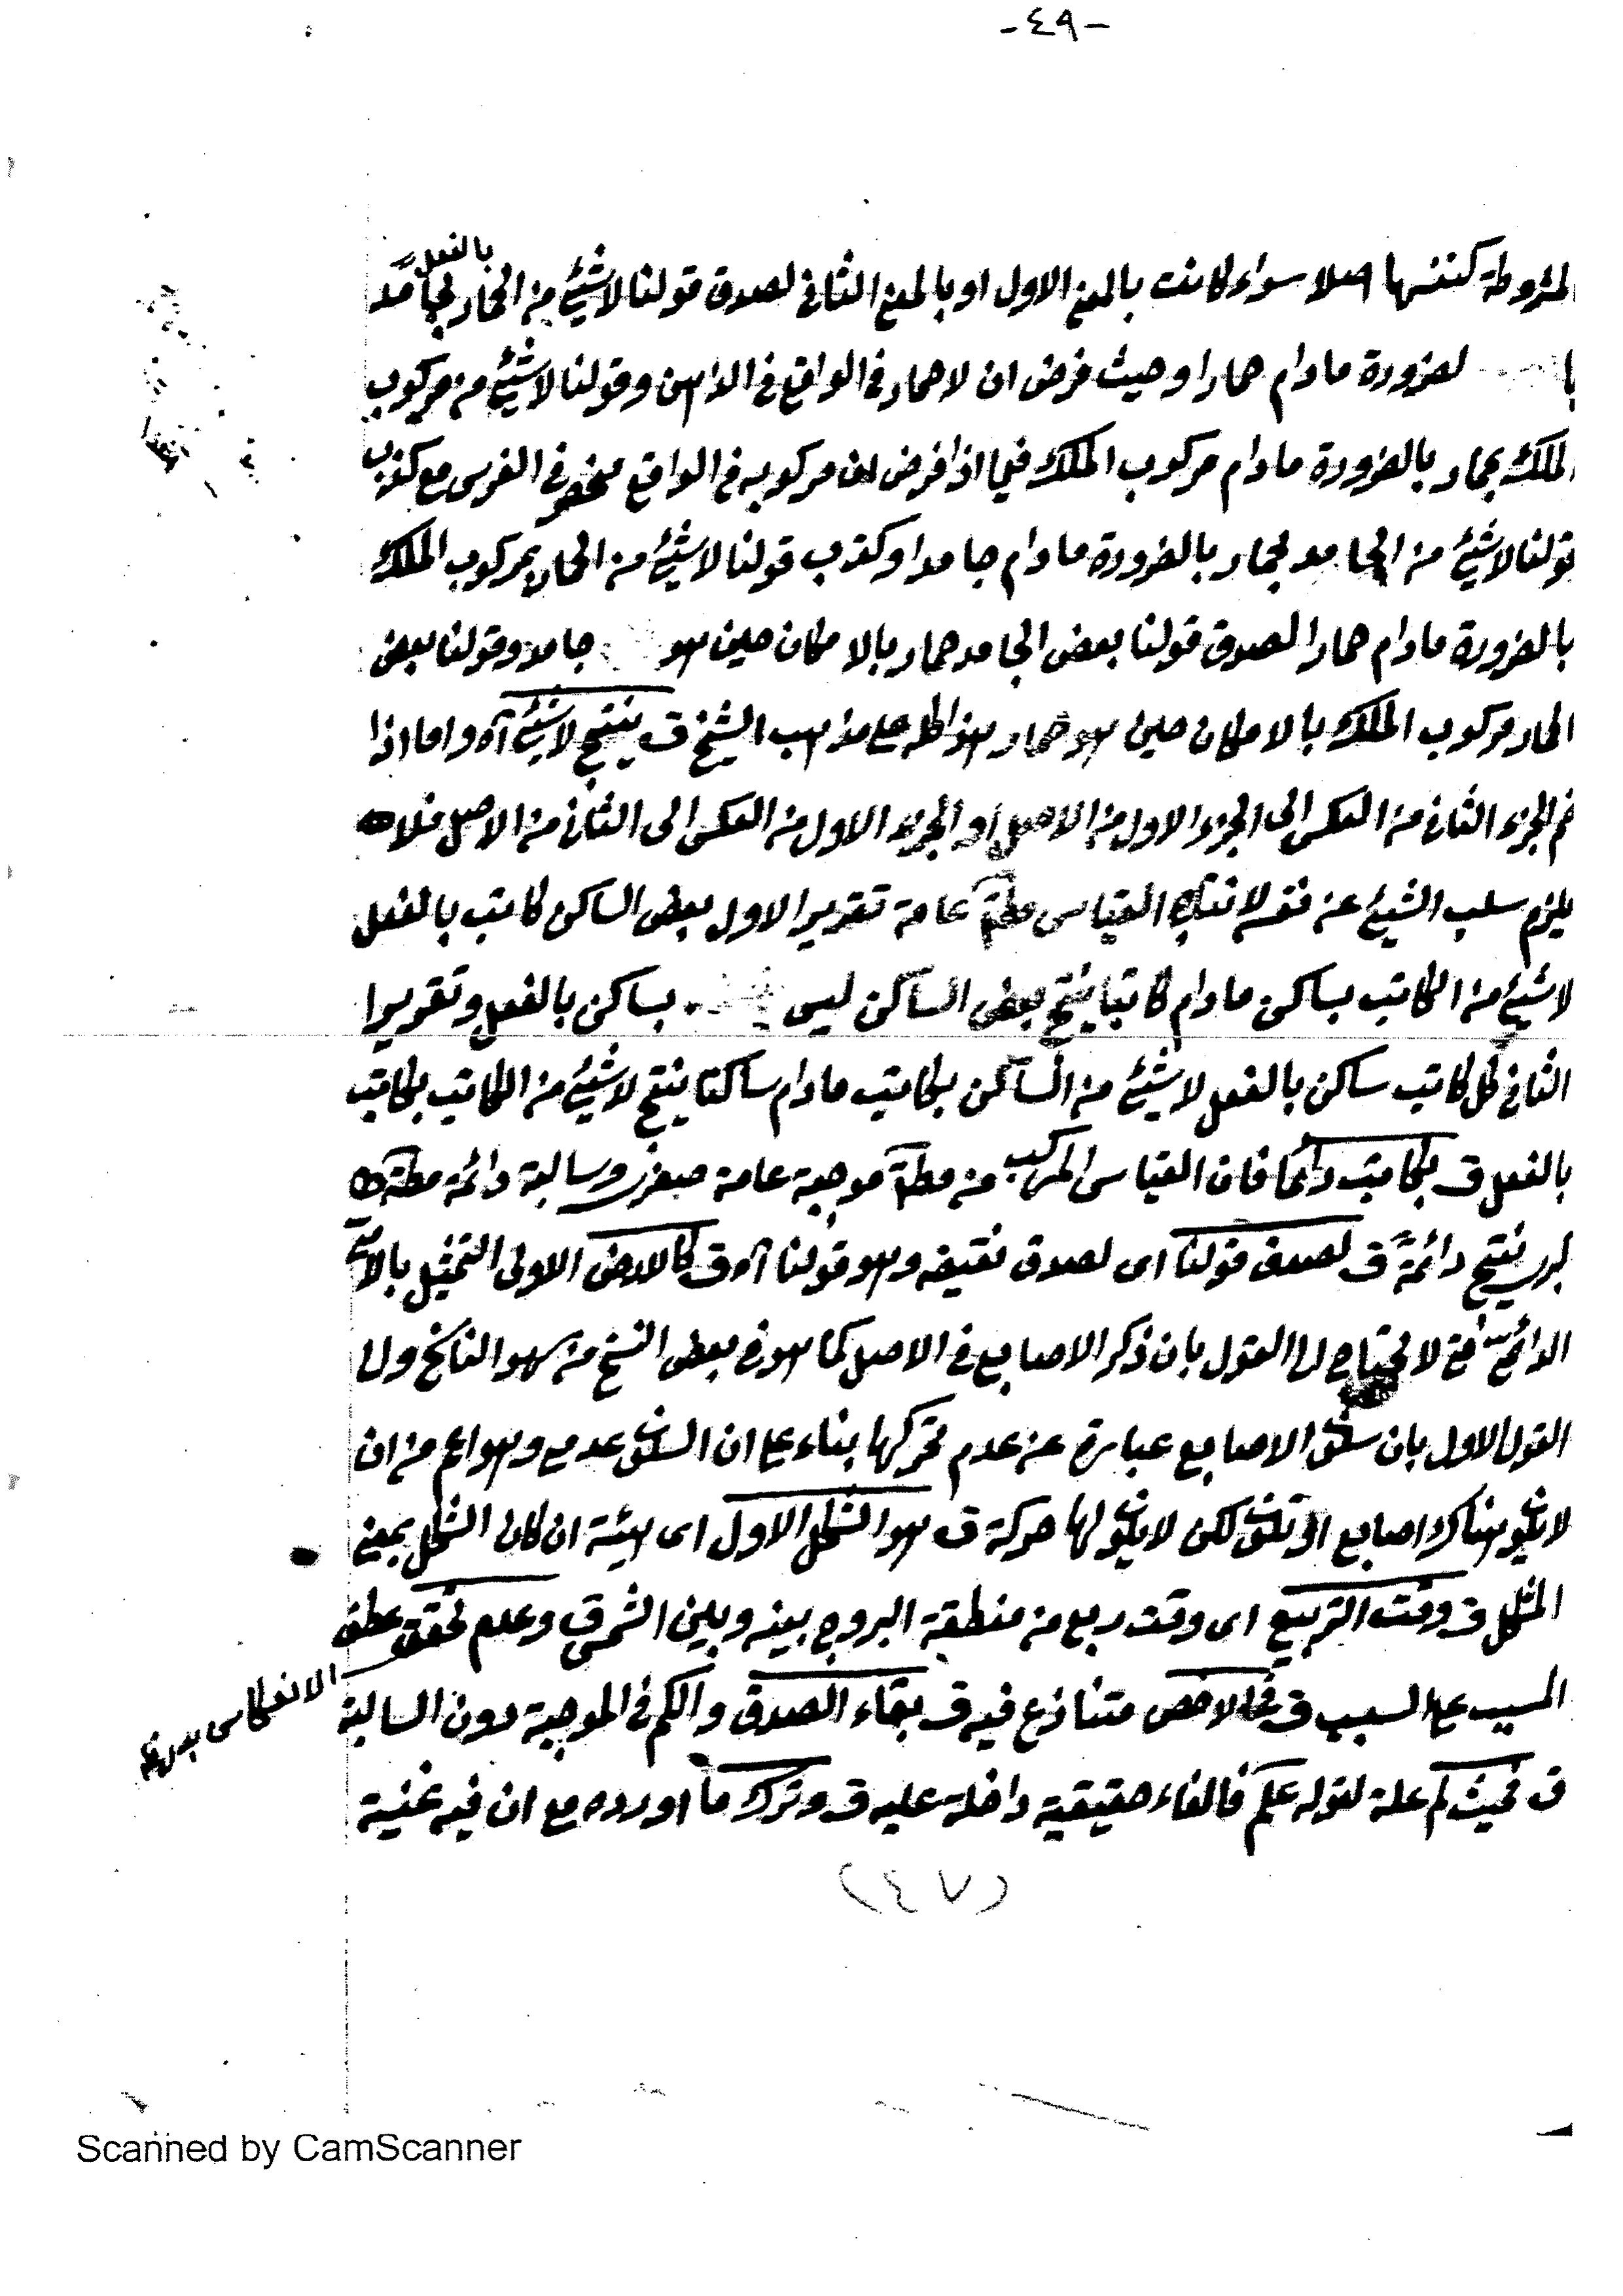 -٤٩-
المشروطة كنفسها اصلا سواء كانت بالمعنى الاول او بالمعنى الثانى لصدق قولنا لاشيئ من الحمار بجامد بالفعل
لضرورة مادام حمارا وحيث فرض ان لا حمار فى الواقع فى الذاهبن وقولنا لاشيئ من مركوب
الملك بحمار بالضرورة مادام مركوب الملك فيما اذا فرض ان مركوبه فى الواقع منحصر فى الفرس مع كذب
قولنا لاشيئ من الجامد بحمار بالضرورة مادام جامدا وكذب قولنا لاشيئ من الحمار بمركوب الملك
بالضرورة مادام حمارا لصدق قولنا بعض الجامد حمار بالامكان حين هو جامد وقولنا بعض
الحمار مركوب الملك بالامكان حين هو حمار هذا كله على مذهب الشيخ ق ينتج لاشيئ آه واما اذا
ضم الجزء الثانى من العكس الى الجزء الاول من الاصل او الجزء الاول من العكس الى الثانى من الاصل فلا
يلزم سلب الشيئ عن نفسه لانتاج القياس مطة عامة تقرير الاول بعض الساكن كاتب بالفعل
لاشيئ من الكاتب بساكن مادام كاتبا ينتج بعض الساكن ليس بساكن بالفعل وتقرير
الثانى كل كاتب ساكن بالفعل لاشيئ من الساكن بكاتب مادام ساكنا ينتج لاشيئ من الكاتب بكاتب
بالفعل ق بكاتب دائما فان القياس المركب من مطة موجبة عامة صغرى وسالبة دائمة مطة
كبرى ينتج دائمة ق لصدق قولنا اى لصدق نقيضه وهو قولنا آه ق كالارض الاولى التمثيل بالا
الدائمة فح لا يحتاج الى القول بان ذكر الاصابع فى الاصل كما هو فى بعض النسخ من سهو الناسخ ولا
القول الاول بان سكون الاصابع عبارة عن عدم تحركها بناء على ان السكون عدمى وهو اعم من ان
لا يكون هناك اصابع او تكون لكن لا يكون لها حركة ق هو الشكل الاول اى هيئة ان كان الشكل بمعنى
المشكل ق وقت التربيع اى وقت ربع من منطقة البروج بينه وبين الشمس ق وعدم تحقق عطف
المسبب على السبب ق فى الاخص متنازع فيه ق بقاء الصدق والكم فى الموجبة دون السالبة
الانعكاس بدون
ق فحيث لم علة لقوله علم فالفاء حقيقية داخلة عليه ق وترك ما اورده مع ان فيه غنية
(٤٧)
Scanned by CamScanner